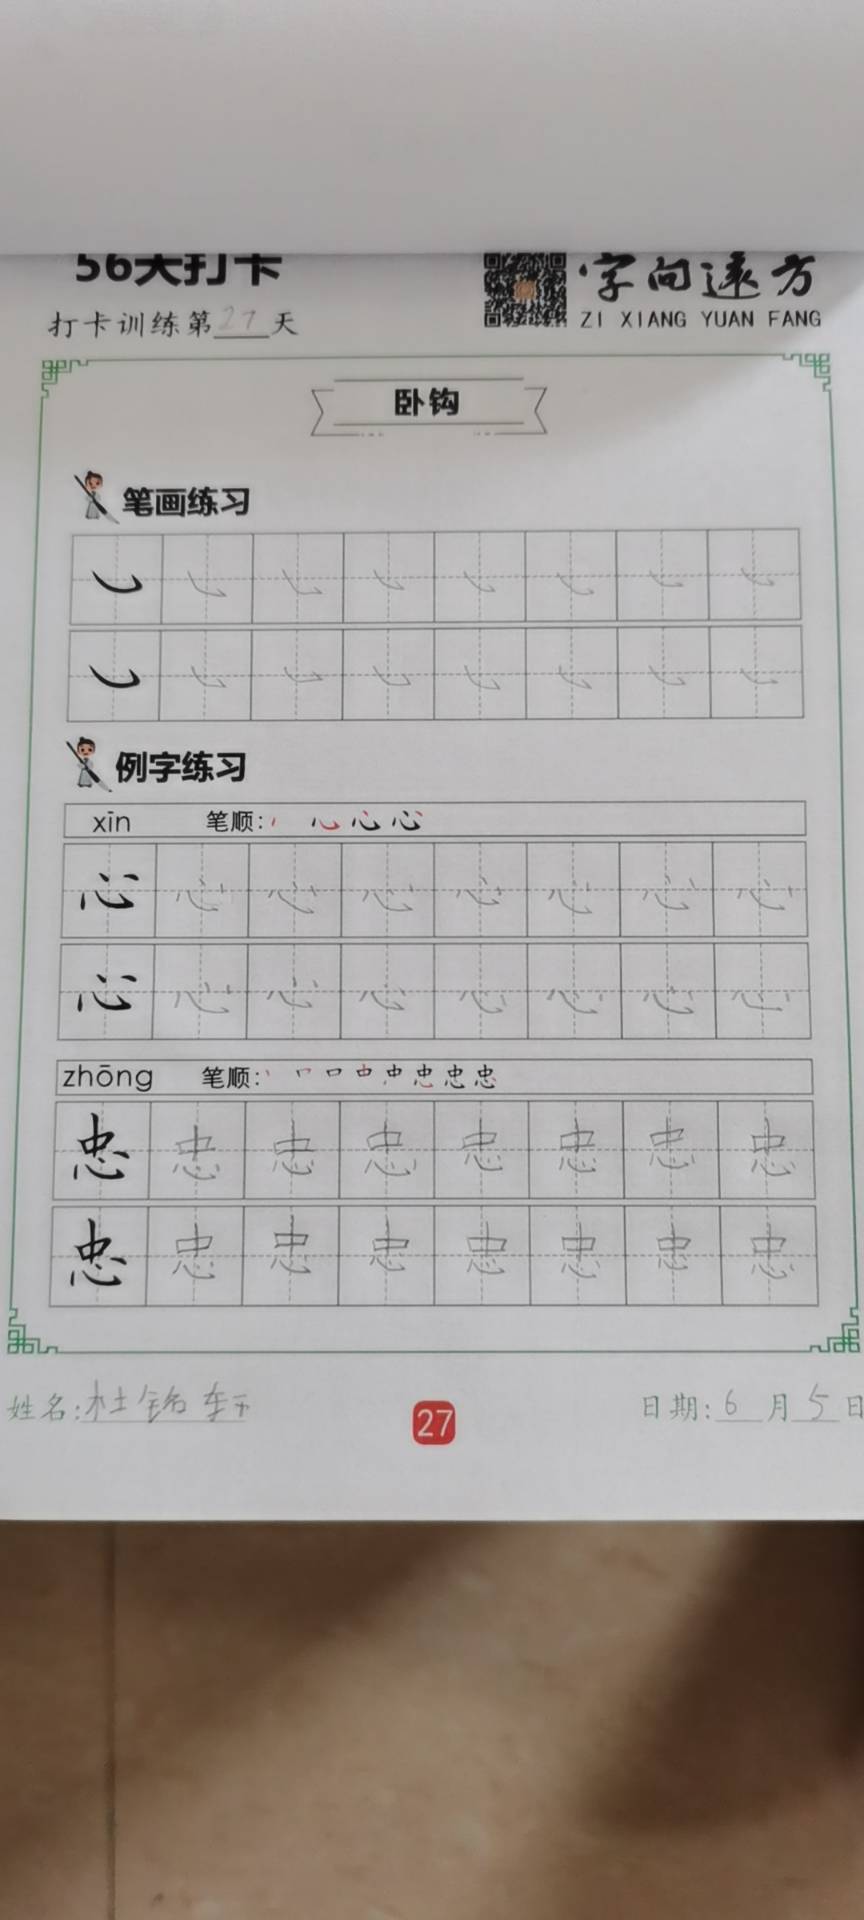 56天打卡
字向远方
打卡训练第27天
ZI XIANG YUAN FANG
卧钩
笔画练习
例字练习
xīn 笔顺:
心 心 心 心 心 心 心 心
心 心 心 心 心 心 心 心
zhōng 笔顺:
忠 忠 忠 忠 忠 忠 忠 忠
忠 忠 忠 忠 忠 忠 忠 忠
姓名:杜锦轩
27
日期:6月5日